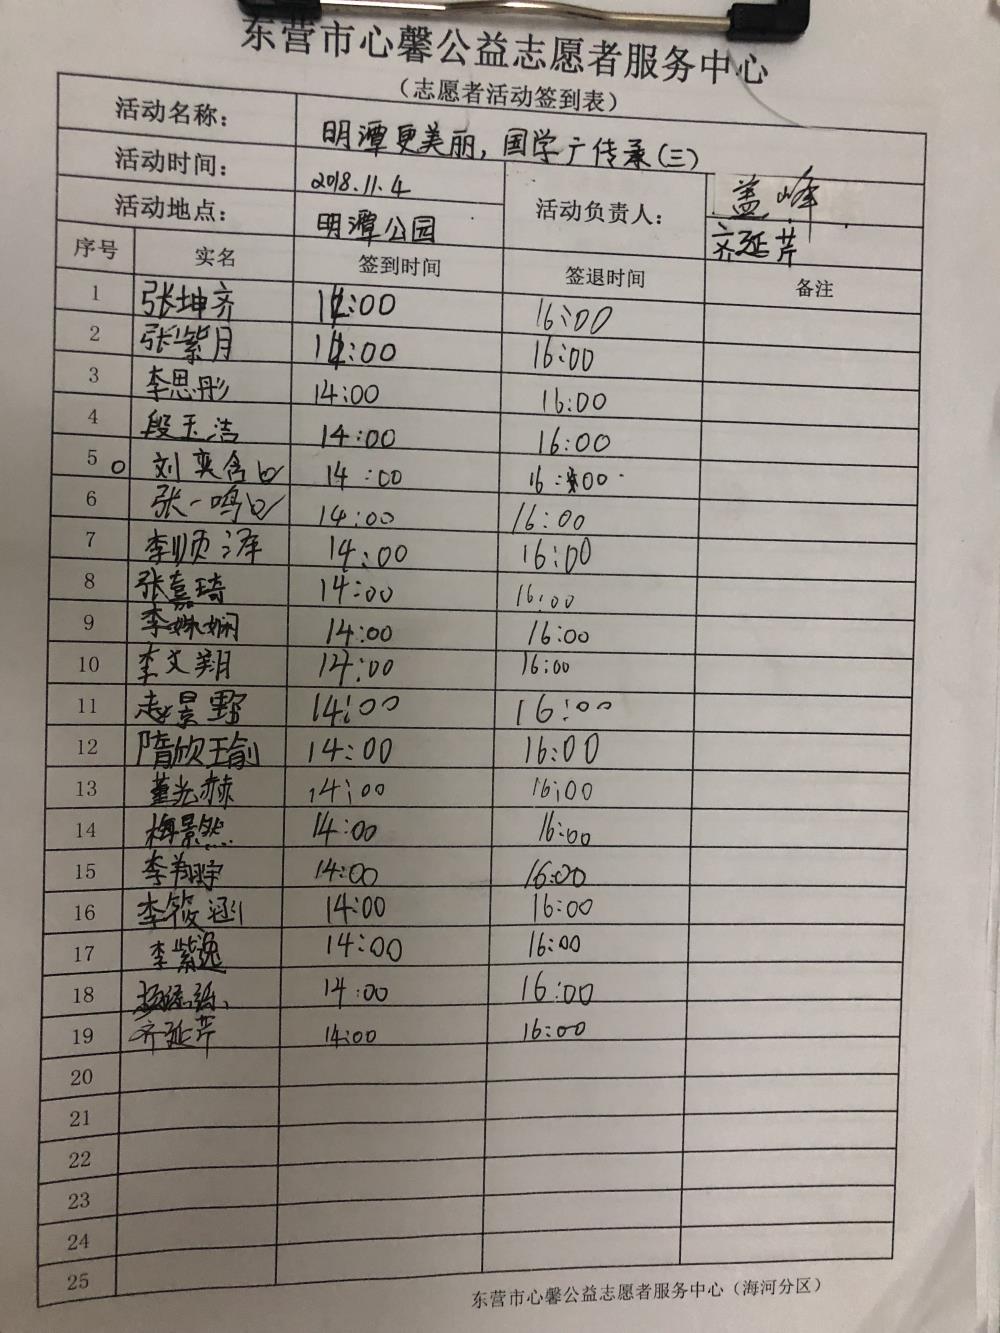 东营市心馨公益志愿者服务中心
（志愿者活动签到表）
活动名称： 明潭更美丽，国学广传承（三）
活动时间： 2018.11.4 活动负责人： 盖峰
活动地点： 明潭公园 齐延芹
序号 实名 签到时间 签退时间 备注
1 张坤齐 14:00 16:00
2 张紫月 14:00 16:00
3 李思彤 14:00 16:00
4 段玉洁 14:00 16:00
5 刘奕含 14:00 16:00
6 张一鸣 14:00 16:00
7 李顺泽 14:00 16:00
8 张嘉琦 14:00 16:00
9 李姝娴 14:00 16:00
10 李文翔 14:00 16:00
11 赵景野 14:00 16:00
12 隋欣瑜 14:00 16:00
13 董光赫 14:00 16:00
14 梅景然 14:00 16:00
15 李翔宇 14:00 16:00
16 李筱涵 14:00 16:00
17 李紫逸 14:00 16:00
18 14:00 16:00
19 齐延芹 14:00 16:00
20
21
22
23
24
25
东营市心馨公益志愿者服务中心（海河分区）